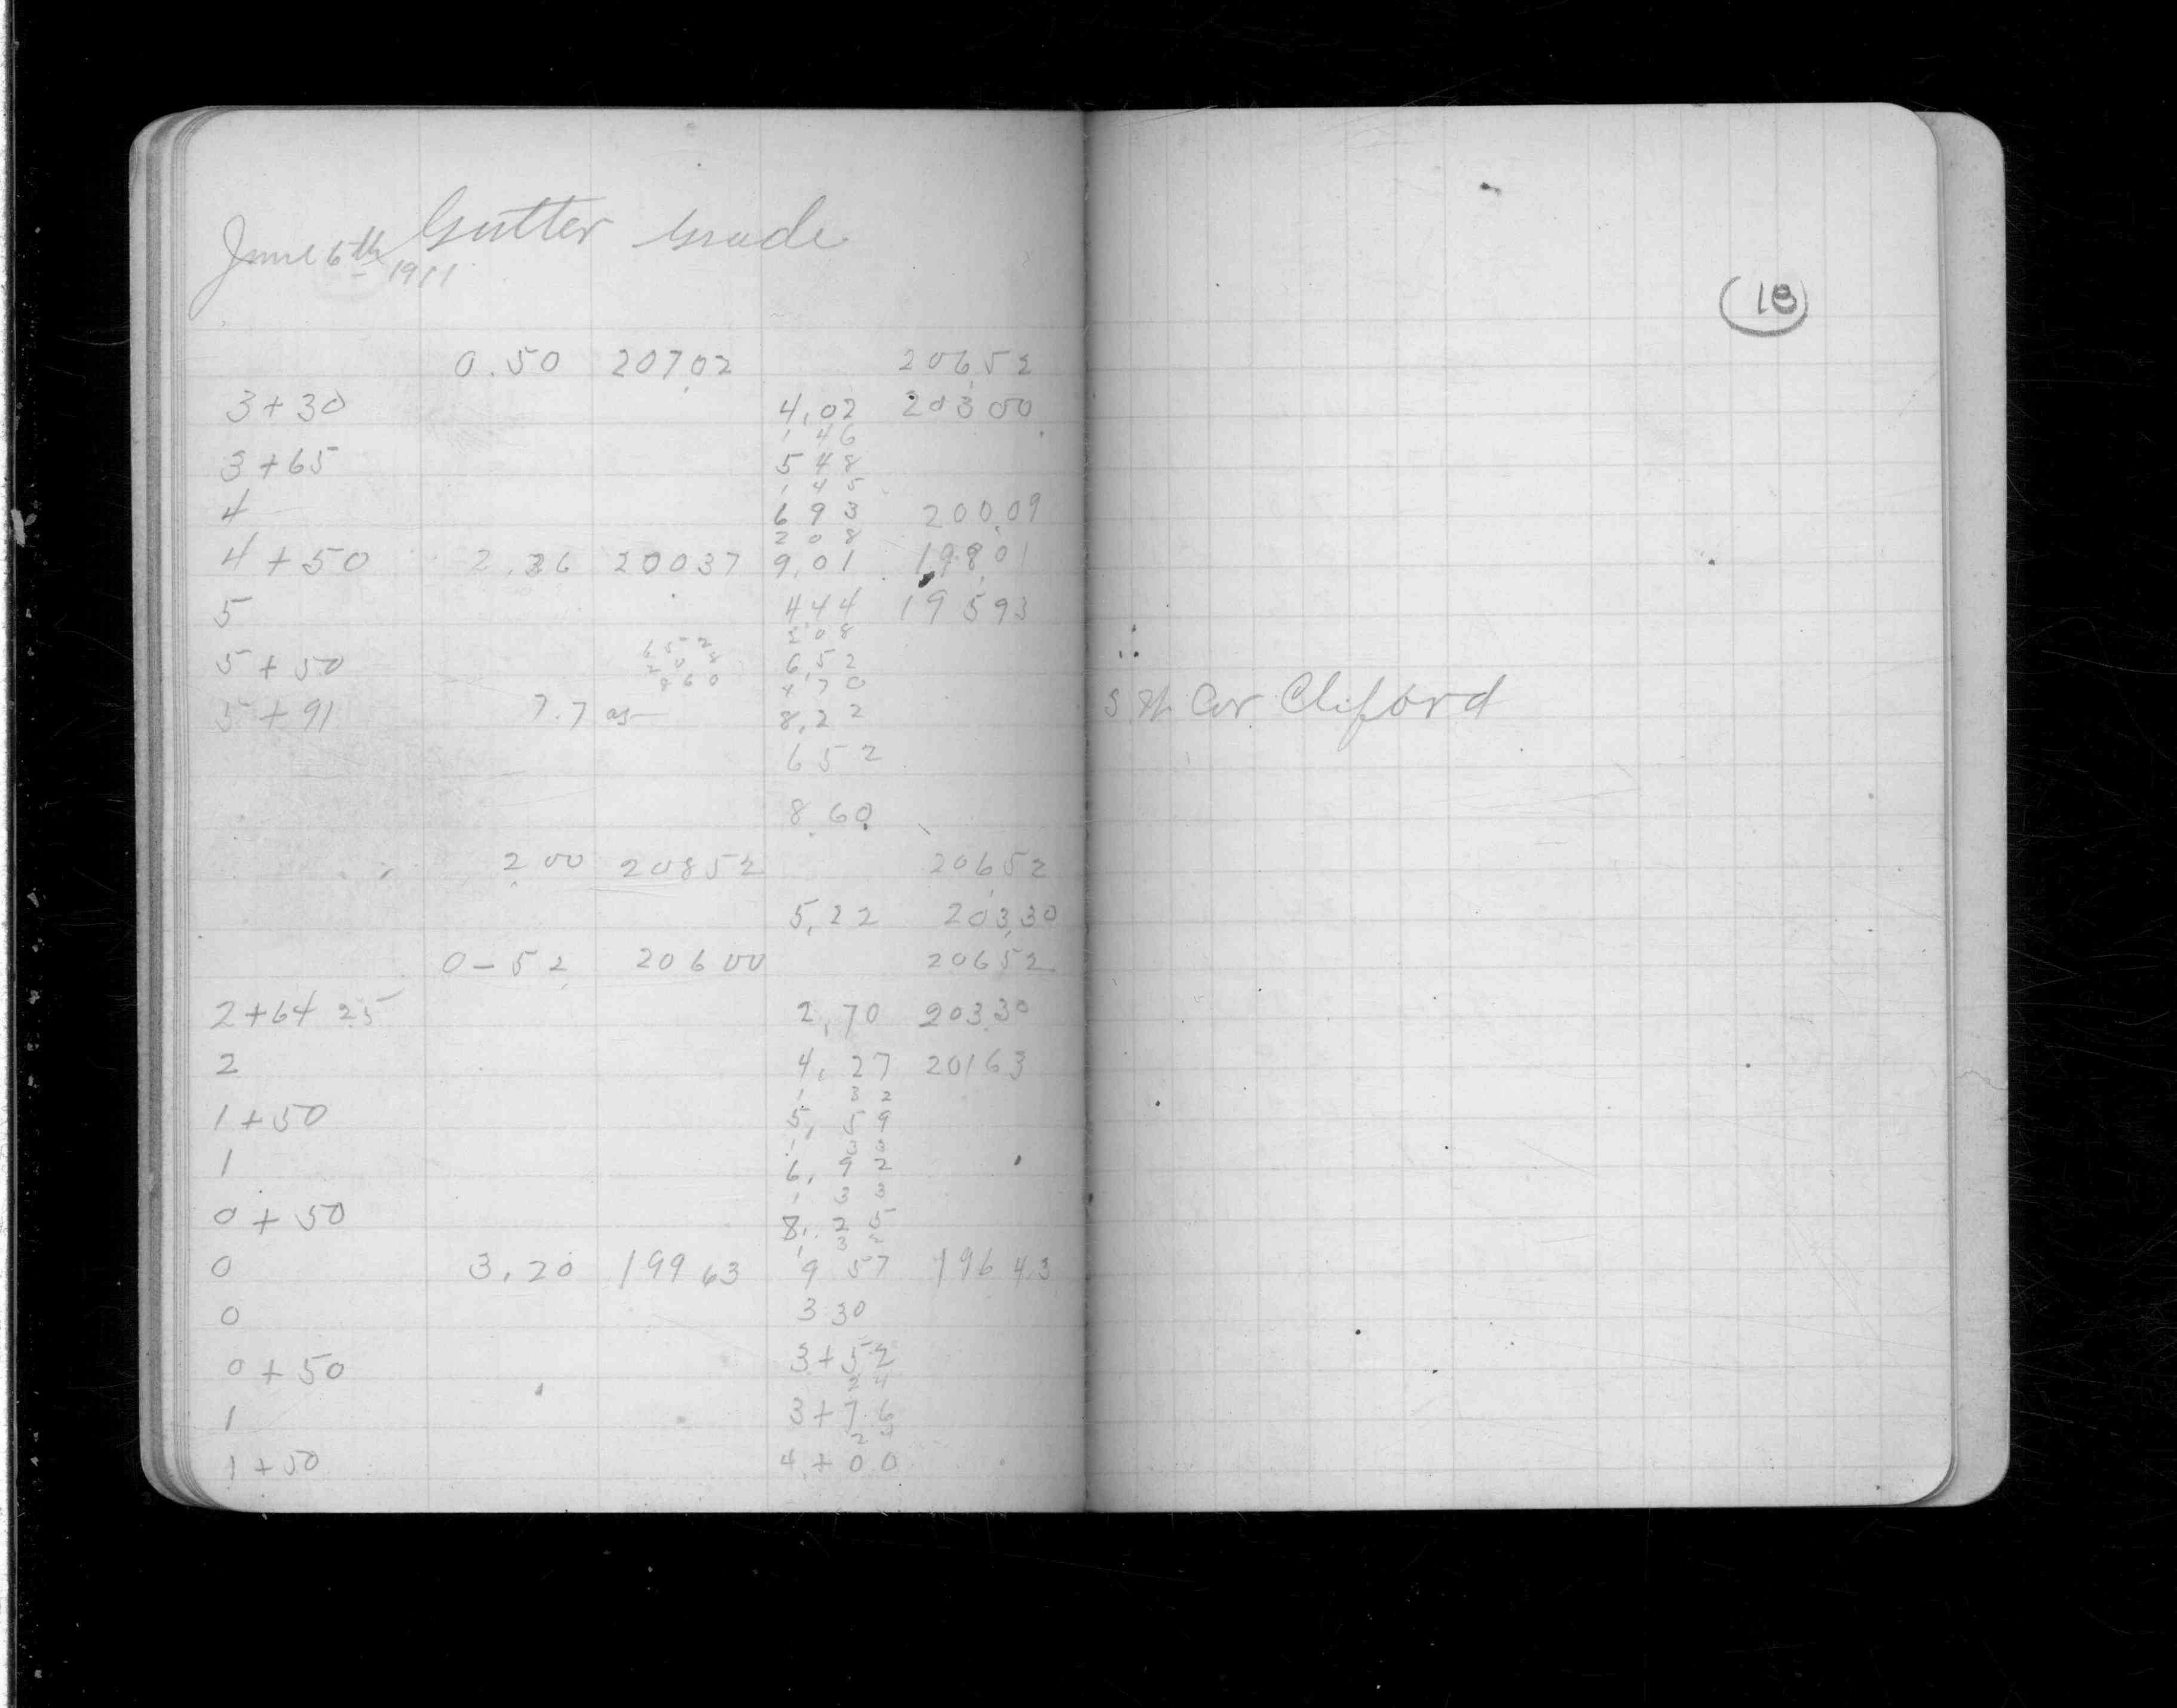 June 6th 1911 Gutter Grade
0.50 207.02 206.52
3+30 4.02 203.00
1 46
3+65 5 48
1 45
4 6 93 200.09
2 08
4+50 2.36 20037 9.01 198.01
5 444 195.93
2 08
652
5+50 208 6.52
860 1 70
5+91 7.7 as 8.22
652
8.60
2.00 20852 206.52
5.22 203.30
0-52 20600 20652
2+64 25 2.70 203.30
2 4.27 20163
1 32
1+50 5.59
1 33
1 6.92
1 33
0+50 8.25
1 32
0 3.20 19963 9 57 196 43
0 3 30
0+50 3+52
24
1 3+76
24
1+50 4+00
(18)
S W Cor Cliford